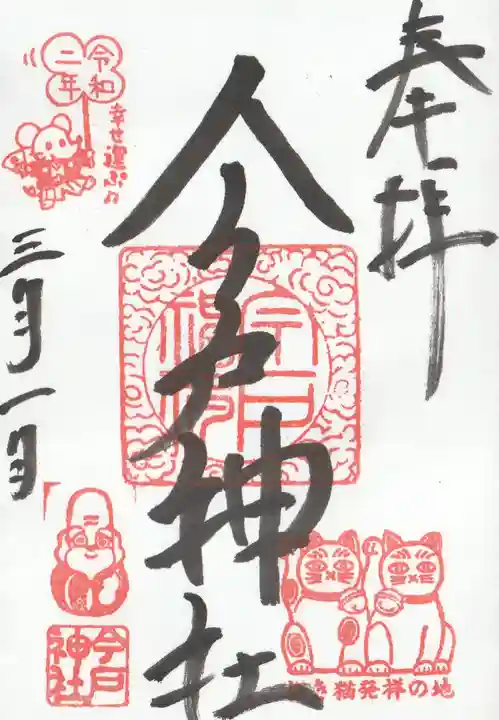 奉拝
今戸神社
令和
二年
幸せ
運ぶ♫
三月一日
今戸
神社
招き猫発祥の地